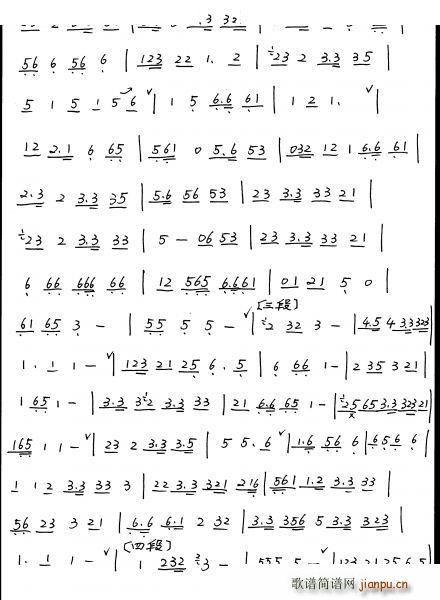 56 6 56 6 | 123 22 1. 2 | 23 2 3.3 35 |
5 1 5 1 5 6 ∨ | 1 5 6.6 61 | 1 2 1. ∨ |
12 2.1 6 65 | 561 0 5.6 53 | 032 12 1.6 61 |
2.3 2 3.3 35 | 5.6 56 53 | 23 3.3 33 21 |
23 2 3.3 33 | 5 — 06 53 | 23 3.3 33 21 |
6 66 666 66 | 12 565 6.661 | 01 21 5 0 |
[三段]
61 65 3 - | 55 5 5 - ∨ | 2 32 3 - | 4.5 4 3.3323 |
1 . 1 1 - ∨ | 123 21 25 6 . 5 | 6 66 1 - | 2 35 3 21 |
1 65 1 - | 3.3 3 2 3.3 33 | 21 6.6 65 1 - | 25 65 3.3 323 21 |
165 1 1 - ∨ | 23 2 3.3 3.5 | 5 5. 6 ∨ | 1.6 56 6 | 65 6 6 |
1 12 33 33 3 | 22 3.3 321 216 | 561 1.2 3.3 33 |
56 23 3 21 | 6.6 6.1 2 32 | 3.3 356 5 3.3 323 |
[四段]
1. 1 1 - ∨ | 1 232 3 - | 555 5 - ∨ | 123 21 25 6 5 |
歌谱简谱网 jianpu.cn